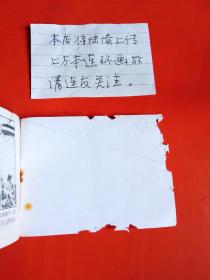 本店将陆续上传
上万本连环画,敬
请连友关注。